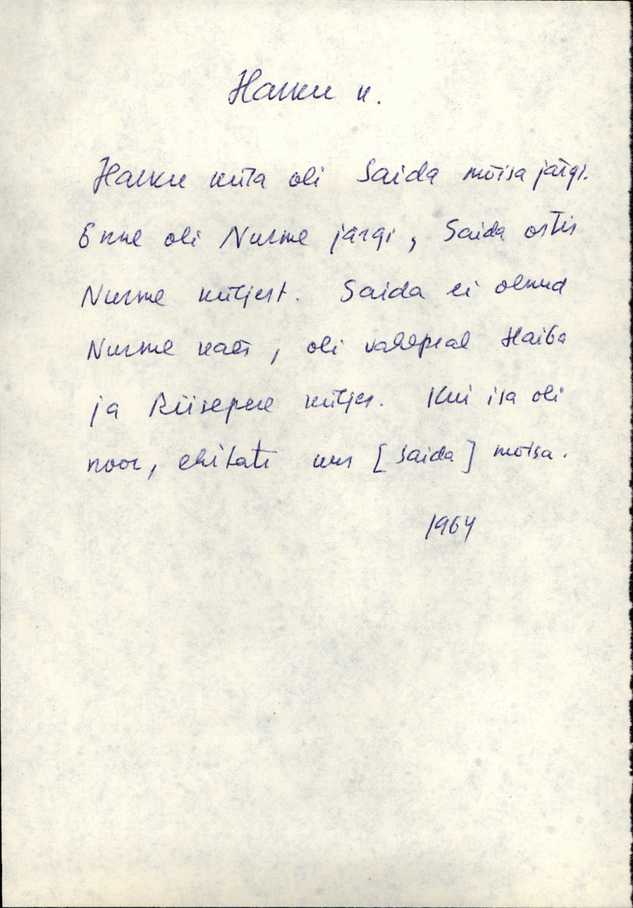 Harku k.
Harku küla oli Saida mõisa järgi.
Enne oli Nurme järgi, Saida ostis
Nurme küljest. Saida ei olnud
Nurme käes, oli vahepeal Haiba
ja Riisepere küljes. Kui isa oli
noor, ehitati uus [Saida] mõisa.
1964